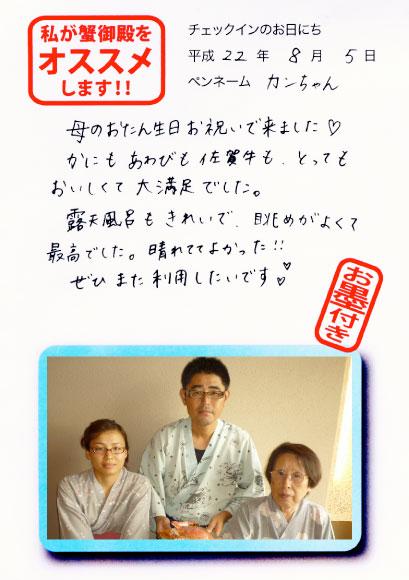 私が蟹御殿を
オススメ
します!!
チェックインのお日にち
平成 22 年 8 月 5 日
ペンネーム カンちゃん
母のおたん生日お祝いで来ました♡
かにも あわびも 佐賀牛も、とっても
おいしくて 大満足でした。
露天風呂も きれいで、眺めがよくて
最高でした。晴れててよかった!!
ぜひ また 利用したいです♡
お墨付き